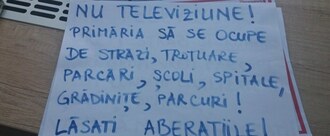 NU TELEVIZIUNE!
PRIMĂRIA SĂ SE OCUPE
DE STRAZI, TROTUARE,
PARCĂRI, ŞCOLI, SPITALE,
GRĂDINIŢE, PARCURI!
LĂSATI ABERAŢIILE!